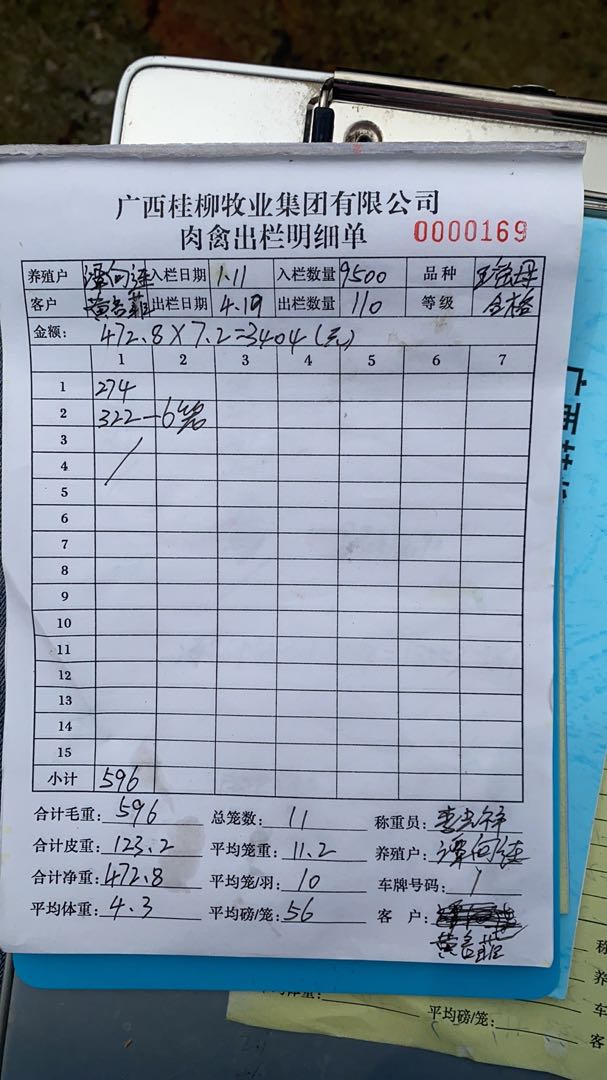 广西桂柳牧业集团有限公司
肉禽出栏明细单 0000169
养殖户 谭向连 入栏日期 1.11 入栏数量 9500 品种
客户 黄名菲 出栏日期 4.19 出栏数量 110 等级 合格
金额: 472.8×7.2=3404(元)
1 2 3 4 5 6 7
1 274
2 322-6笼
3
4
5
6
7
8
9
10
11
12
13
14
15
小计 596
合计毛重: 596 总笼数: 11 称重员:
合计皮重: 123.2 平均笼重: 11.2 养殖户: 谭向连
合计净重: 472.8 平均笼/羽: 10 车牌号码: /
平均体重: 4.3 平均磅/笼: 56 客 户:
黄名菲
平均磅/笼: